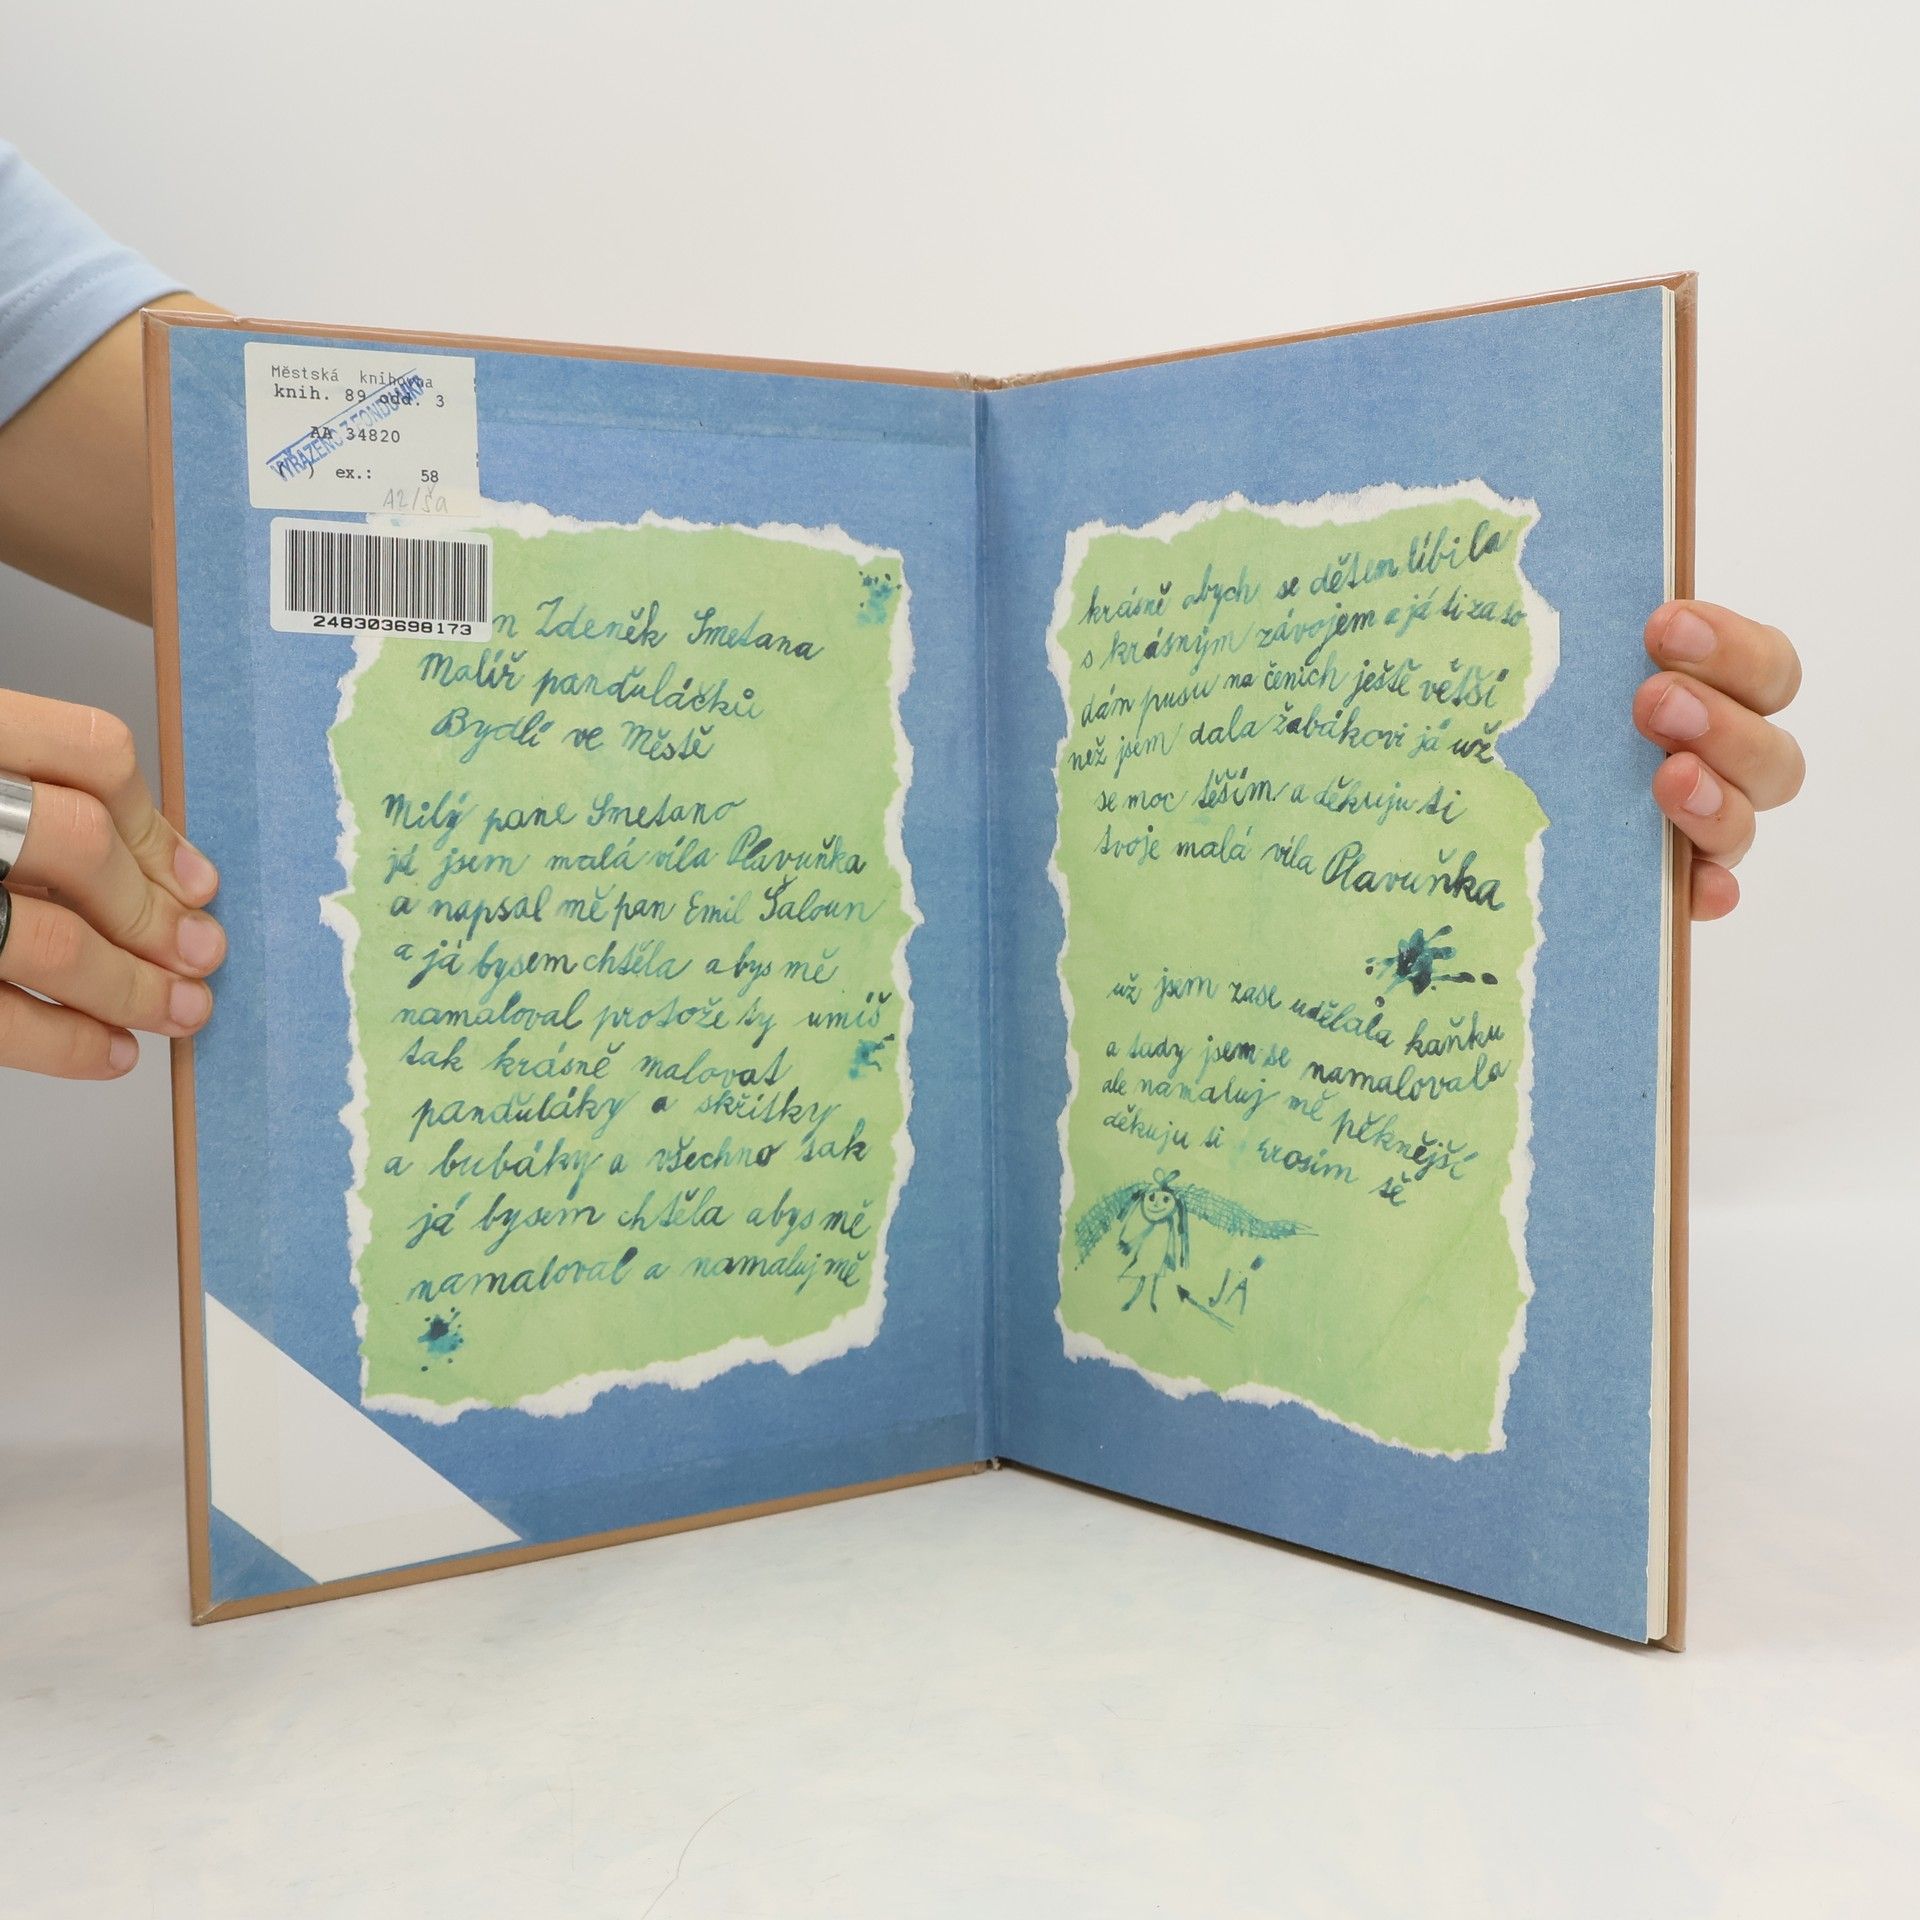 Městská knihovna
knih. 89 odd. 3
AA 34820
VYŘAZENO Z FONDU MKP
ex.: 58
A2/Ša
248303698173
n Zdeněk Smetana
Malíř panďuláčků
Bydlí ve Městě
Milý pane Smetano
já jsem malá víla Plavuňka
a napsal mě pan Emil Šaloun
a já bysem chtěla abys mě
namaloval protože ty umíš
tak krásně malovat
panďuláky a skřítky
a bubáky a všechno tak
já bysem chtěla abys mě
namaloval a namaluj mě
krásně abych se dětem líbila
s krásným závojem a já ti za to
dám pusu na čenich ještě větší
než jsem dala žabákovi já už
se moc těším a děkuju ti
tvoje malá víla Plavuňka
už jsem zase udělala kaňku
a tady jsem se namalovala
ale namaluj mě pěknější
děkuju ti prosím tě
JÁ